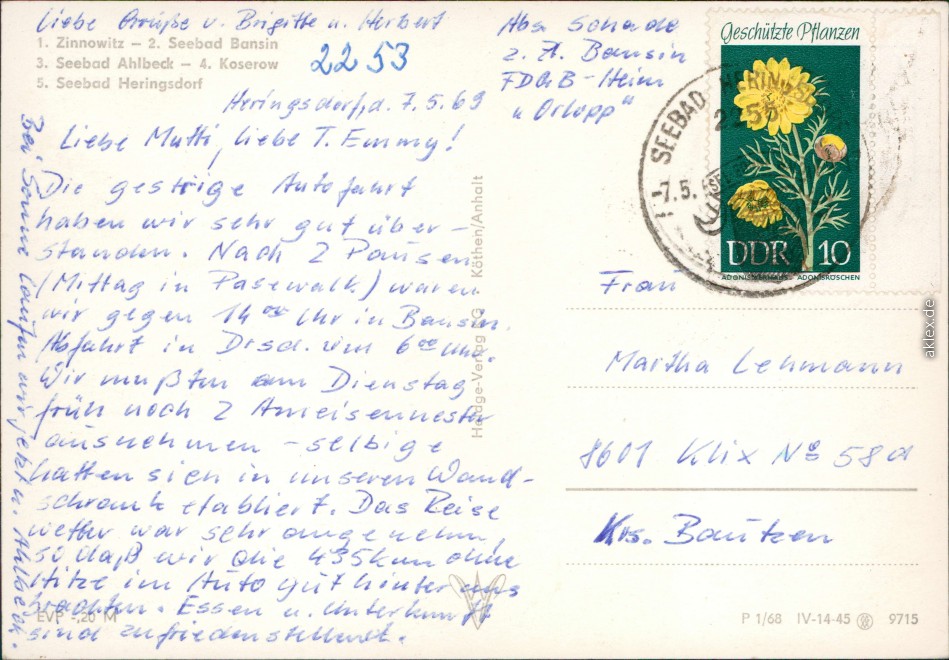 Liebe Grüße v. Brigitte u. Herbert
1. Zinnowitz – 2. Seebad Bansin
3. Seebad Ahlbeck – 4. Koserow
5. Seebad Heringsdorf
2253
Heringsdorf, d. 7.5.69
Liebe Mutti, liebe T. Emmy!
Die gestrige Autofahrt
haben wir sehr gut über-
standen. Nach 2 Pausen
(Mittag in Pasewalk) waren
wir gegen 14 00 Uhr in Bansin.
Abfahrt in Drsd. um 6 00 Uhr.
Wir mußten am Dienstag
früh noch 2 Ameisennester
ausnehmen – selbige
hatten sich in unseren Wand-
schrank etabliert. Das Reise
wetter war sehr angenehm,
so daß wir die 435 km ohne
Hitze im Auto gut hinter uns
brachten. Essen u. Unterkunft
sind zufriedenstellend.
Bei Sonne laufen wir jetzt n. Ahlbeck.
EVP -,20 M
Köthen/Anhalt
Abs. Schade
z. Zt. Bansin
FDGB-Heim
"
Geschützte Pflanzen
DDR 10
ADONISRÖSCHEN
SEEBAD HERINGSD
2255
-7.5.
Frau
Martha Lehmann
8601 Klix No 58d
Krs. Bautzen
P 1/68 IV-14-45 9715
aklex.de